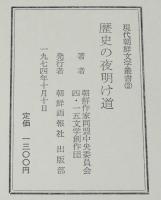 現代朝鮮文学叢書②
歴史の夜明け道
著者 朝鮮作家同盟中央委員会
四・一五文学創作団
発行者 朝鮮画報社 出版部
一九七四年十月十日
定価 一三〇〇円